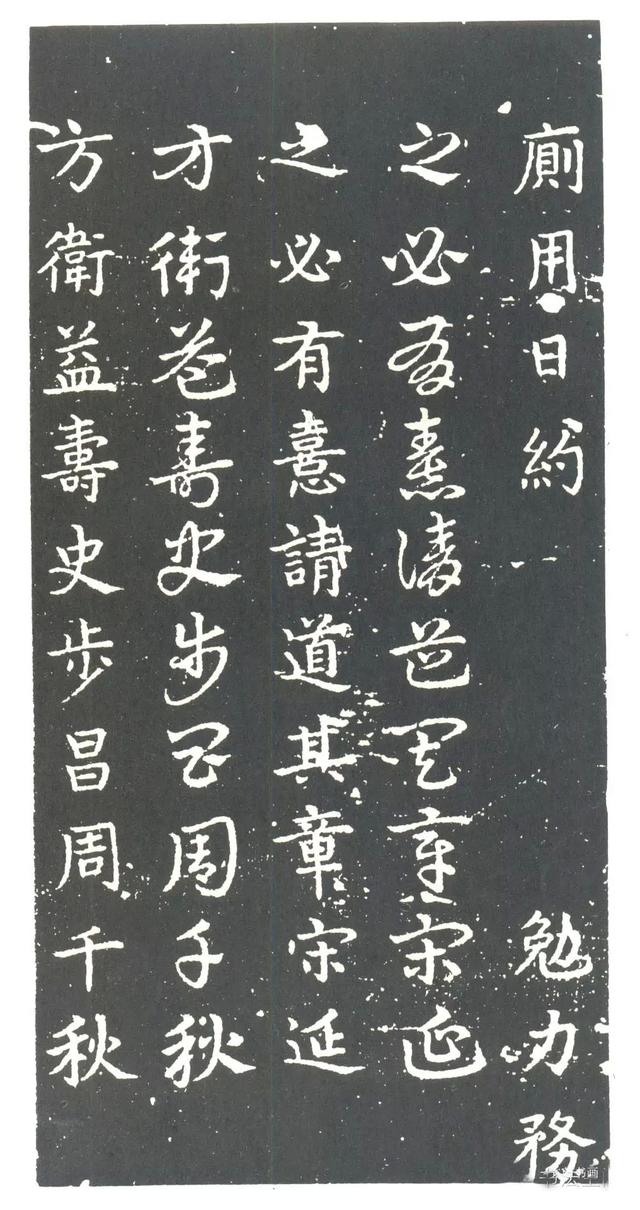 廁用日約 勉力務
之必有憙請道其章宋延
之必有憙請道其章宋延
方衛益壽史步昌周千秋
方衛益壽史步昌周千秋